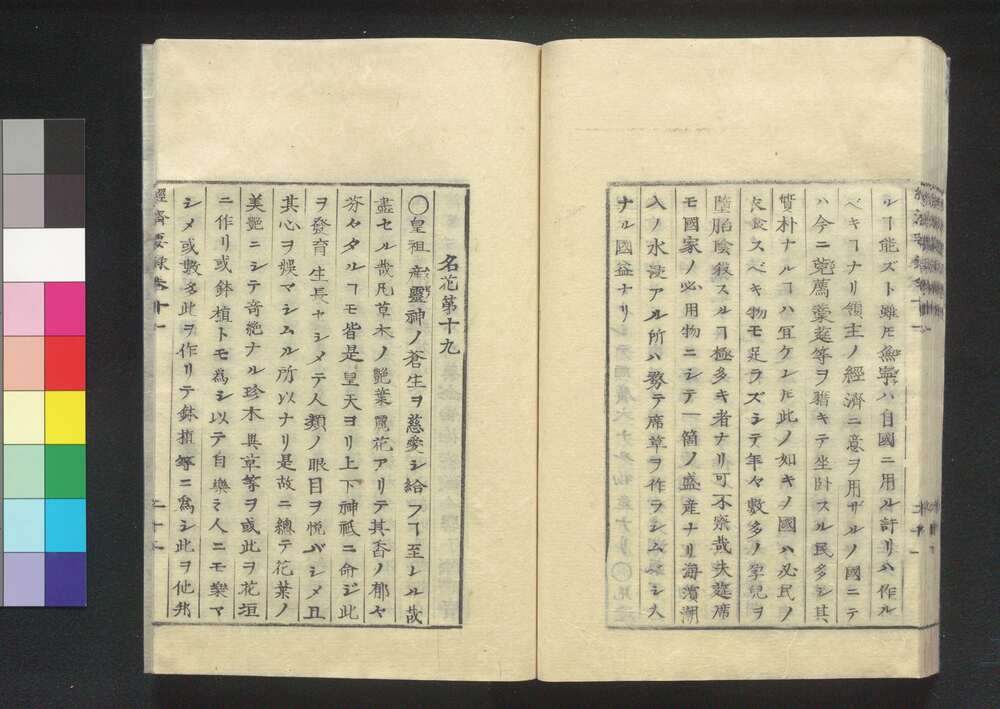 ルヿ能ズト雖㐧無寧ハ自國ニ用ル許リハ作ル
ベキヿナリ領主ノ經濟ニ意ヲ用ザルノ國ニテ
ハ今ニ薦藁莚等ヲ籍キテ坐臥スル民多シ其
質朴ナルヿハ宜ケレ㐧此ノ如キノ國ハ必民ノ
衣食スベキ物モ足ラズシテ年々數多ノ孕兒ヲ
墮胎陰殺スルヿ極多キ者ナリ可不察哉夫莚席
モ國家ノ必用物ニシテ一箇ノ盛産ナリ海濱潮
入ノ水浸アル所ハ務テ席草ヲ作ラシムベシ大
ナル國益ナリ
名花第十九
〇皇祖産靈神ノ蒼生ヲ慈愛シ給フヿ至レル哉
盡セル哉凡草木ノ艷葉麗花アリテ其香ノ郁々
芬々タルヿモ皆是皇天ヨリ上下神祇ニ命ジ此
ヲ發育生長セシメテ人類ノ眼目ヲ悦バシメ且
其心ヲ娯マシムル所以ナリ是故ニ總テ花葉ノ
美艷ニシテ奇絶ナル珍木異草等ヲ或此ヲ花垣
ニ作リ或鉢植トモ為シ以テ自樂ミ人ニモ樂マ
シメ或數多此ヲ作リテ鉢植等ニ為シ此ヲ他邦
經濟要録卷十一